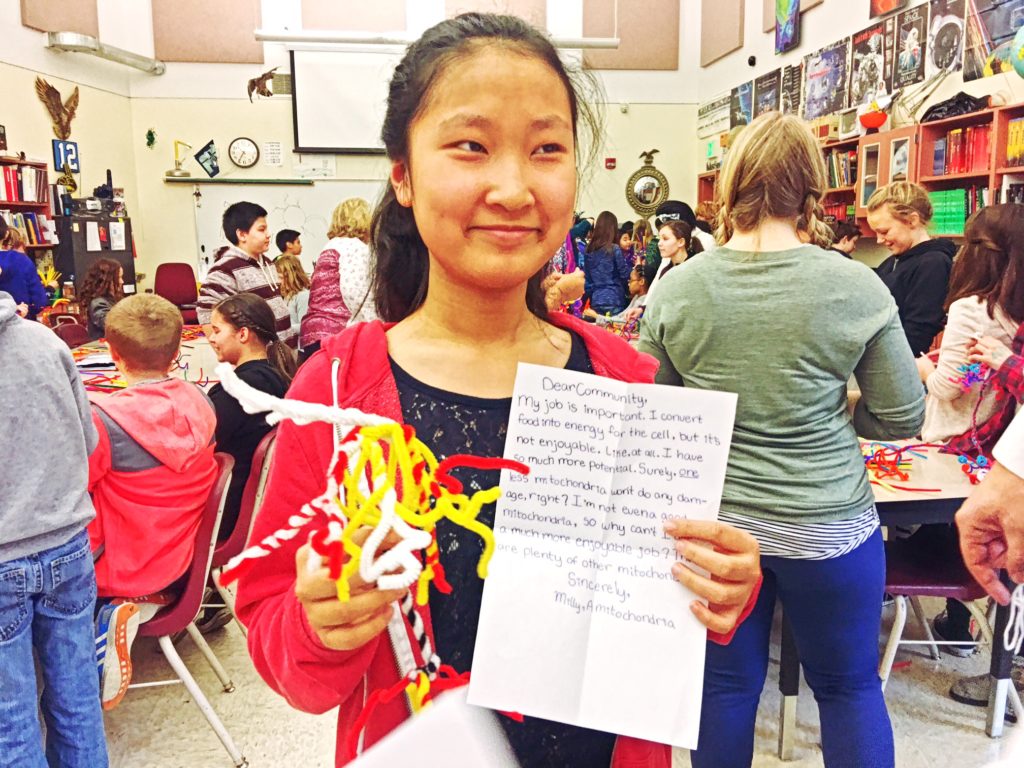 12
Dear Community,
My job is important. I convert
food into energy for the cell, but its
not enjoyable. Like. at all. I have
so much more potential. Surely, one
less mitochondria won't do any dam-
age, right? I'm not even a good
mitochondria, so why can't I
a much more enjoyable job?
are plenty of other mitochond
Sincerely,
Milly, A mitochondria
SPACE